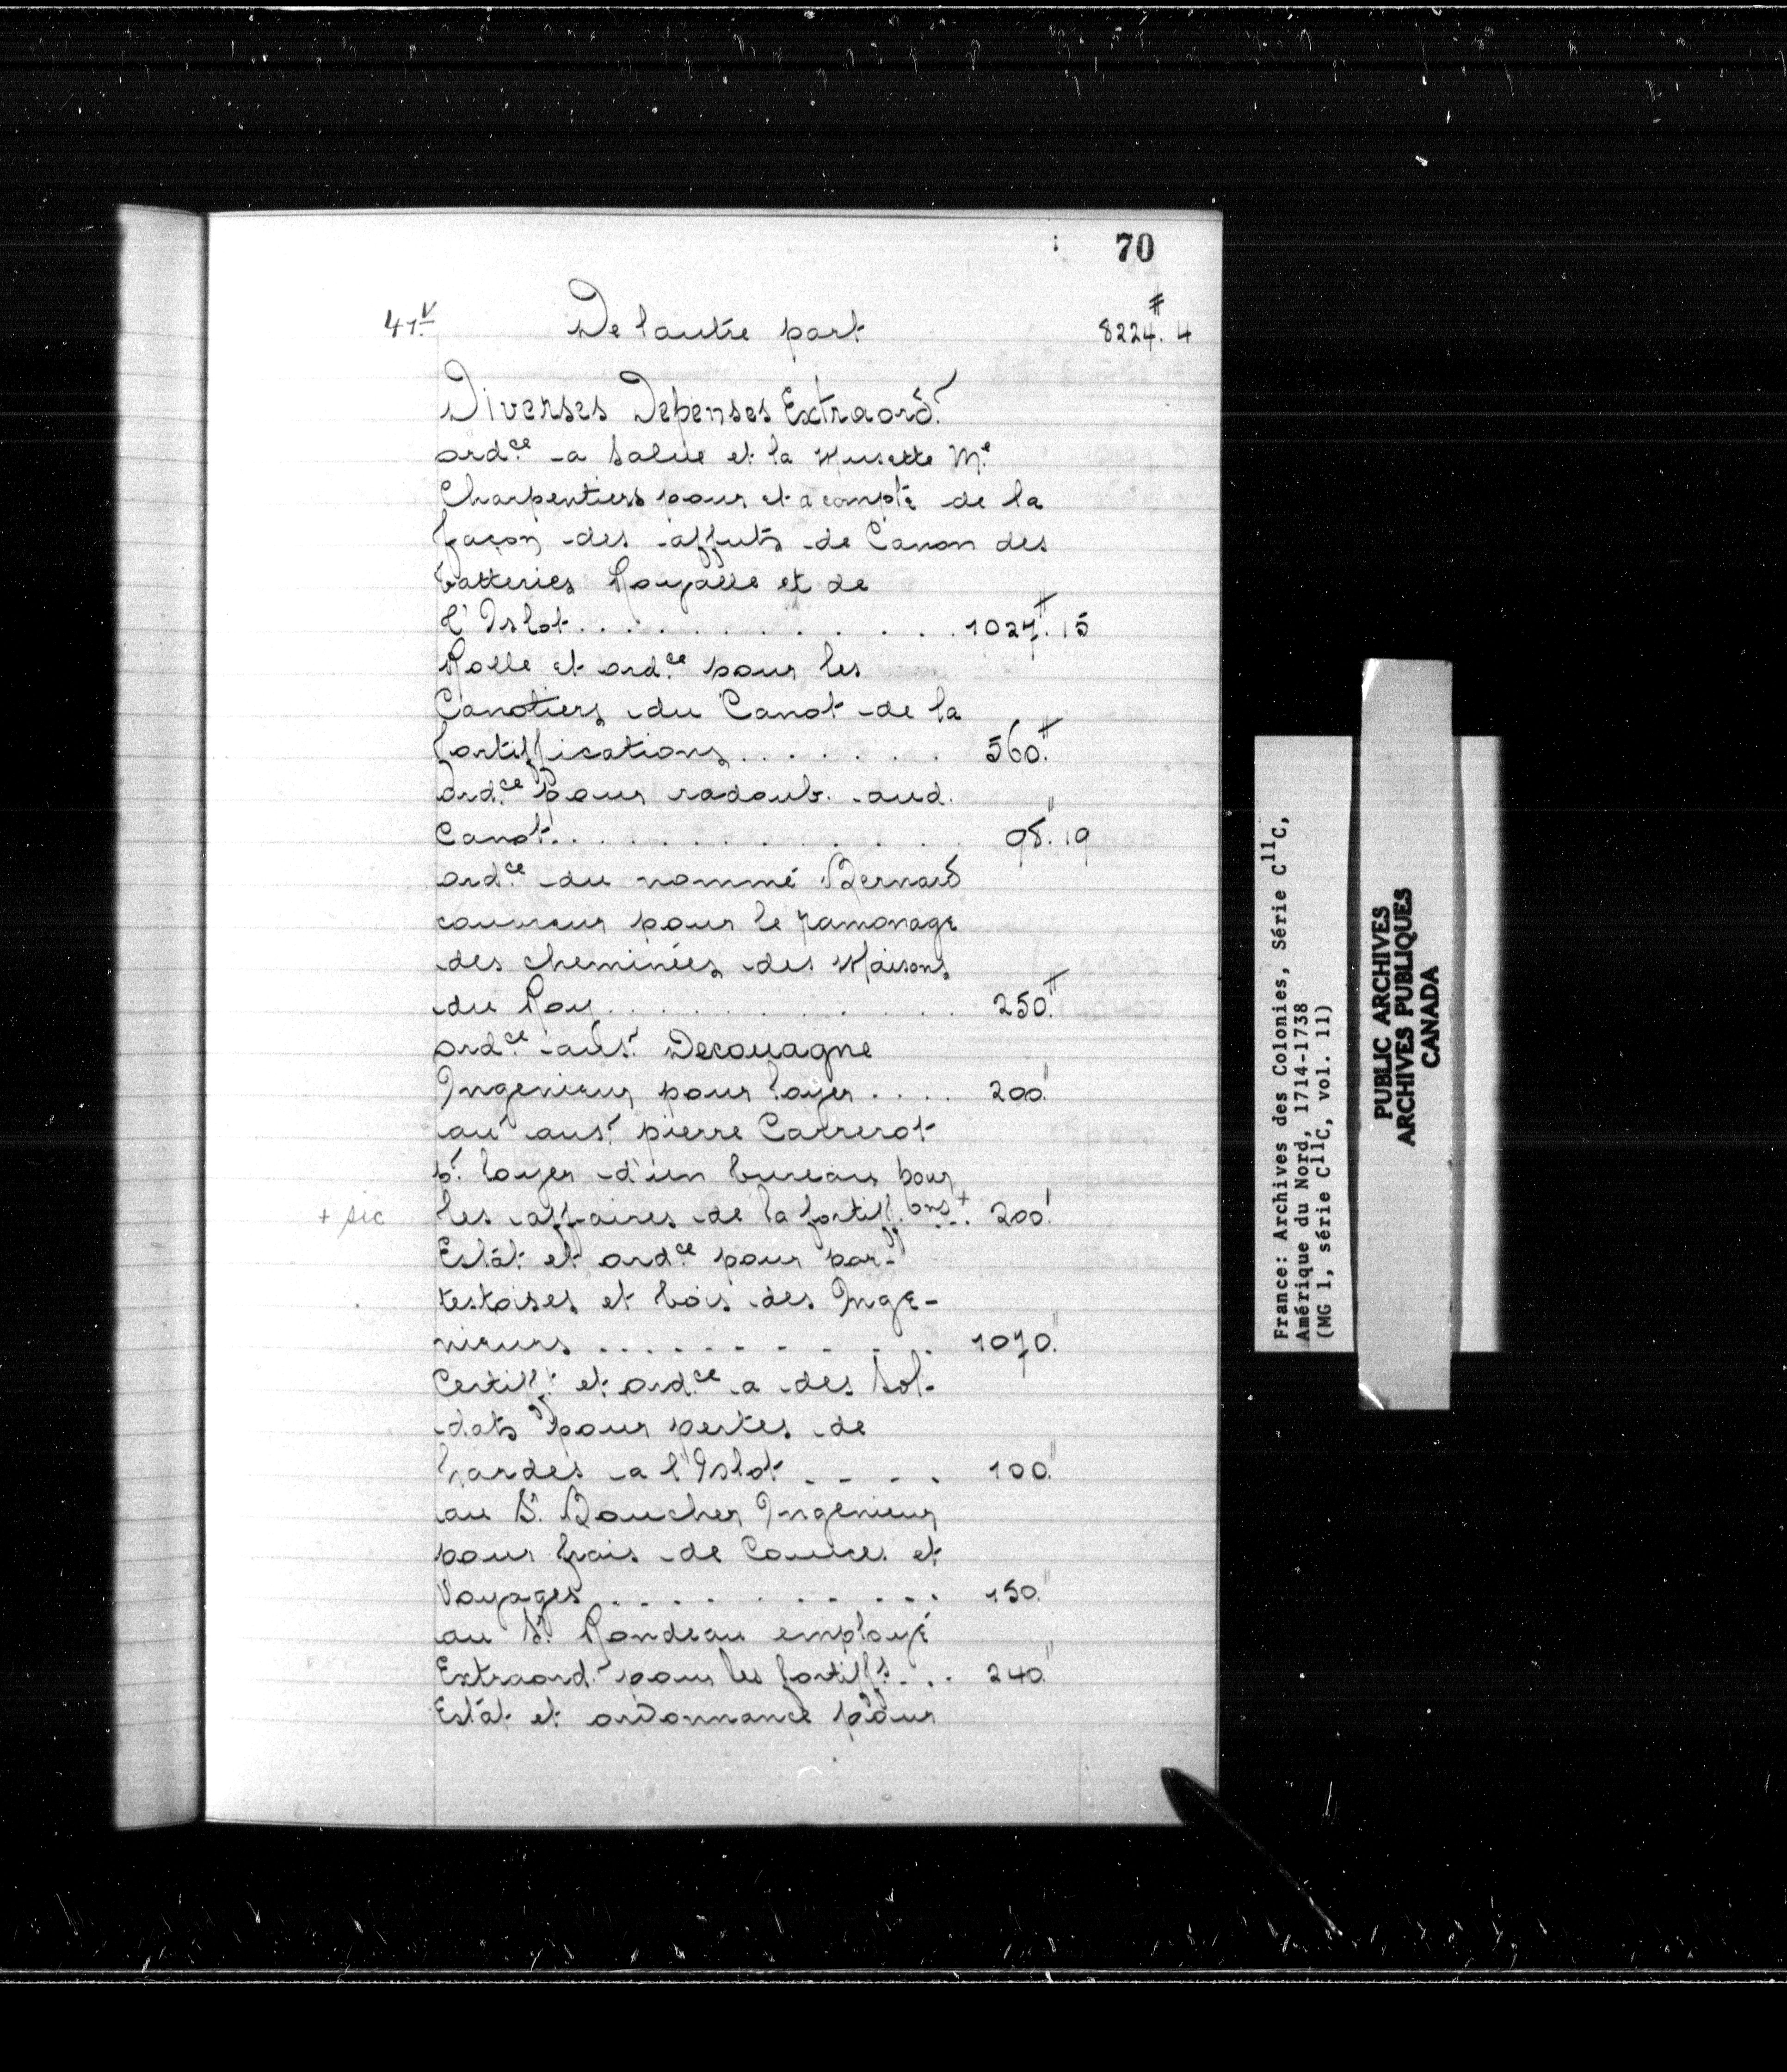 70
41v De lautre part 8224.# 4
Diverses Depenses Extraord.r
ord.ce a Salue et la Musette M.e
Charpentiers pour et a compte de la
façon des affuts de Canon des
batteries Royalle et de
l'Islot............. 1027.# 15
Rolle et ord.ce pour les
Canotiers du Canot de la
fortiffications....... 560.#
ord.ce Pour radoub. aud.
Canot............. 98." 19
ord.ce du nommé Bernard
couvreur pour le ramonage
des cheminées des Maisons
du Roy............. 250.#
ord.ce au s.r Decouagne
Ingenieur pour loyer.... 200."
au s.r pierre Carrerot
p.r loyer d'un bureau pour
+ sic les affaires de la fortiff.ons+... 200."
Estât et ord.ce pour por-
testoises et bois des Inge-
nieurs............. 1070."
Certiff.t et ord.ce a des Sol-
dats pour pertes de
hardes a l'Islot.... 100."
au S.r Boucher Ingenieur
pour frais de Cources et
Voyages........... 150."
au S.r Rondeau employé
Extraord.r pour les fortiff.s... 240."
Estât et ordonnance pour
France: Archives des Colonies, Série C11C,
Amérique du Nord, 1714-1738
(MG 1, série C11C, vol. 11)
PUBLIC ARCHIVES
ARCHIVES PUBLIQUES
CANADA